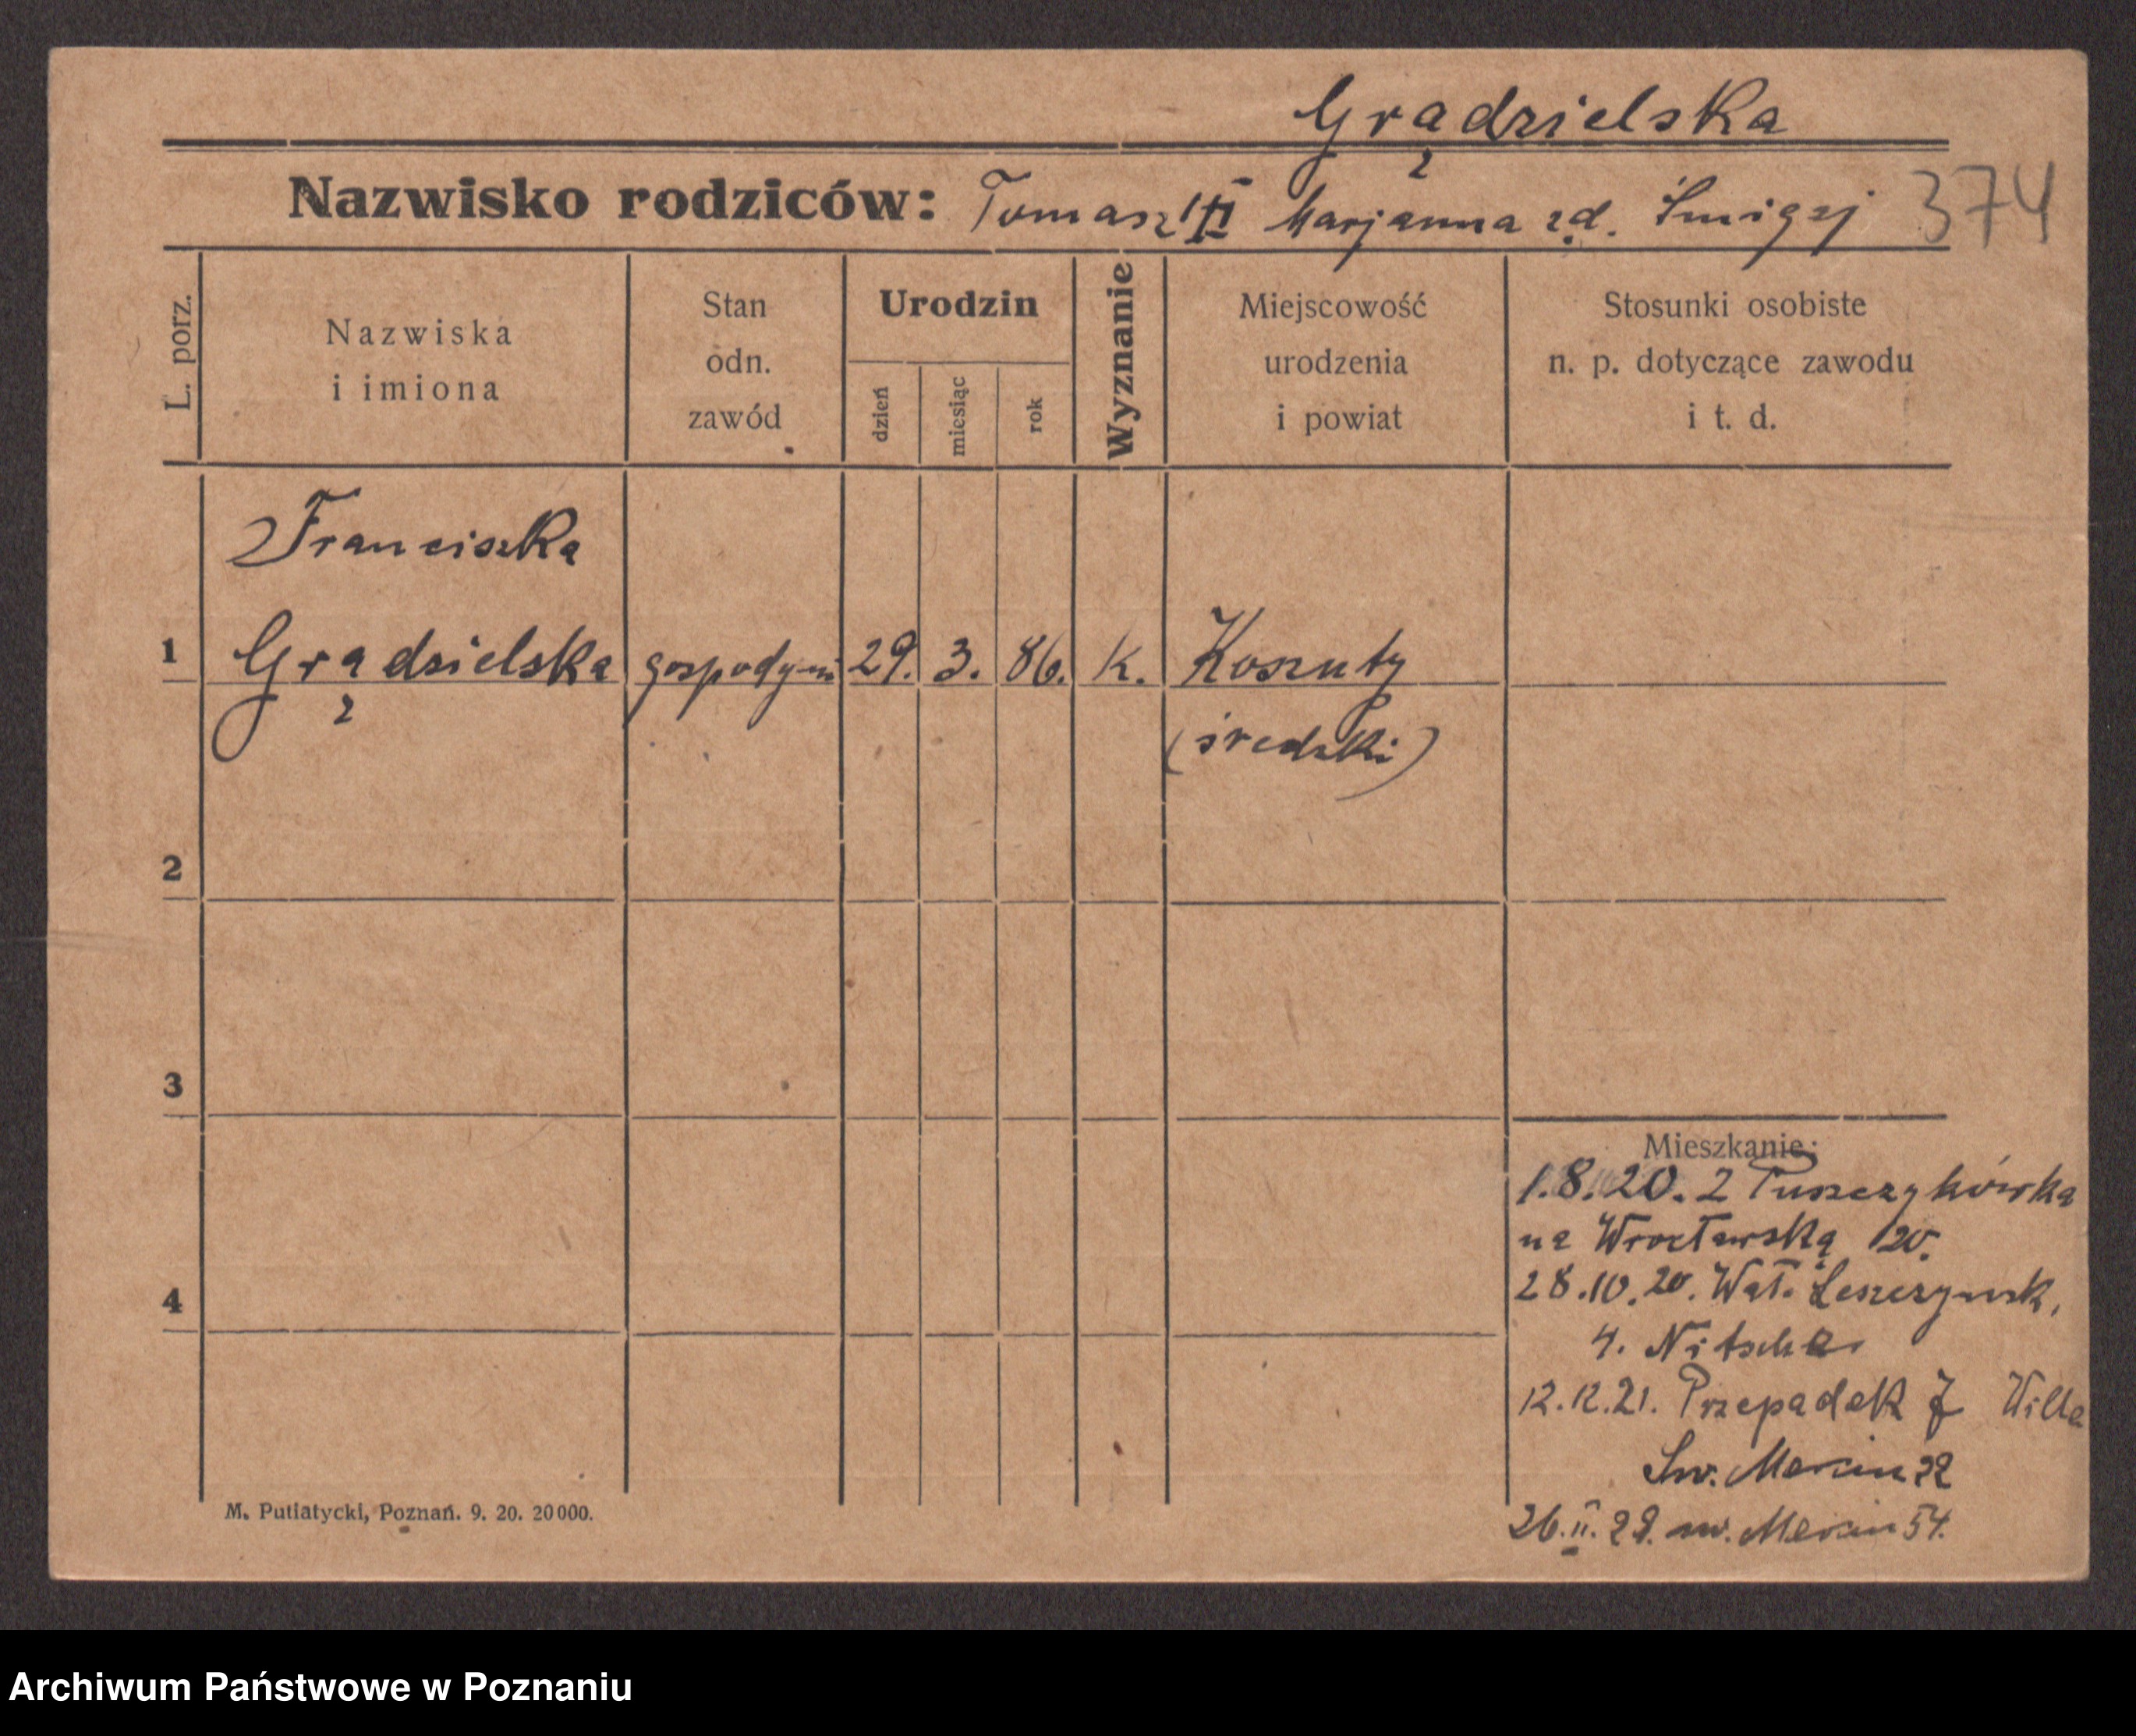 Grądzielska
Nazwisko rodziców: Tomasz Marjanna z d. Śmigaj 374
L. porz.
Nazwiska
i imiona
Stan
odn.
zawód
Urodzin
dzień
miesiąc
rok
Wyznanie
Miejscowość
urodzenia
i powiat
Stosunki osobiste
n. p. dotyczące zawodu
i t. d.
Franciszka
1 Grądzielska gospodyni 29. 3. 86. k. Koszuty
(średzki)
2
3
4
Mieszkanie:
1.8.20. Z Puszczykówka
na Wrocławską 20.
28.10.20. Wał. Leszczyńsk.
4. Nitsche
12.12.21. Przepadek Willa
Św. Marcin 22
26.II. 29. św. Marcin 54.
M. Putiatycki, Poznań. 9. 20. 20000.
Archiwum Państwowe w Poznaniu